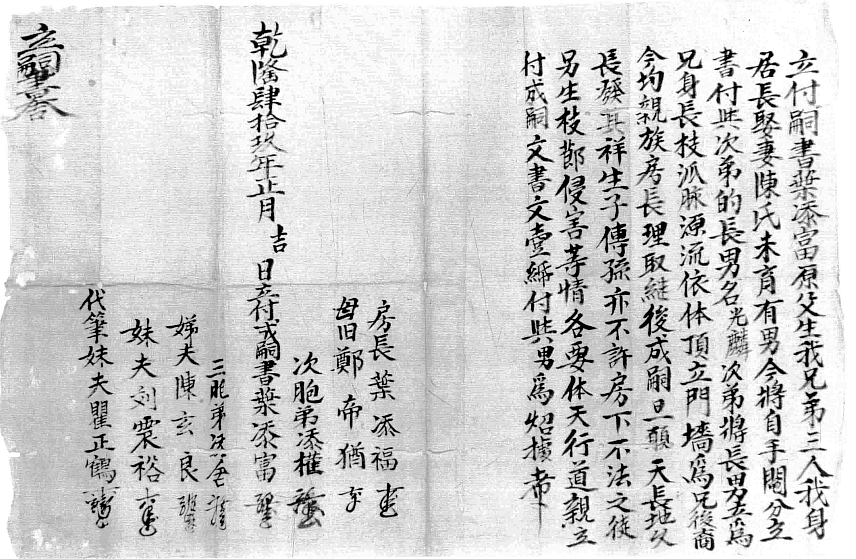 立付嗣書葉添富原父生我兄弟三人我身
居長娶妻陳氏未育有男今將自手鬮分立
書付與次弟的長男名光麟次弟將長男去為
兄身長枝派脉源流依体頂立門墻為兄後裔
今均親族房長理取継後成嗣旦願天長地久
長發其祥生子傳孫亦不許房下不法之徒
另生枝節侵害等情各要体天行道親立
付成嗣文書文壹紙付與男為炤據
房長葉添福
母旧鄭帝猶
次胞弟添權
乾隆肆拾玖年正月吉日立付成嗣書葉添富
三胞弟添
娣夫陳玄良
妹夫刘震裕
代筆妹夫瞿正鶴
立嗣